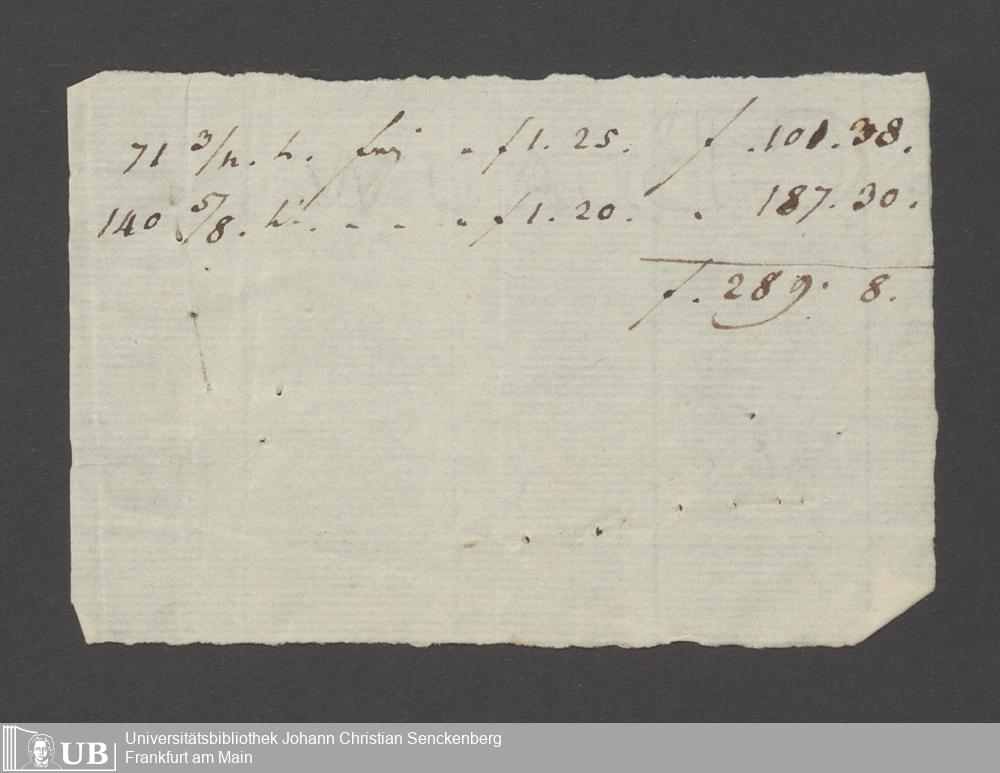 71 3/4. für " f 1. 25. f. 101. 38.
140 5/8. " " " f 1. 20. " 187. 30.
f. 289. 8.
UB Universitätsbibliothek Johann Christian Senckenberg
Frankfurt am Main